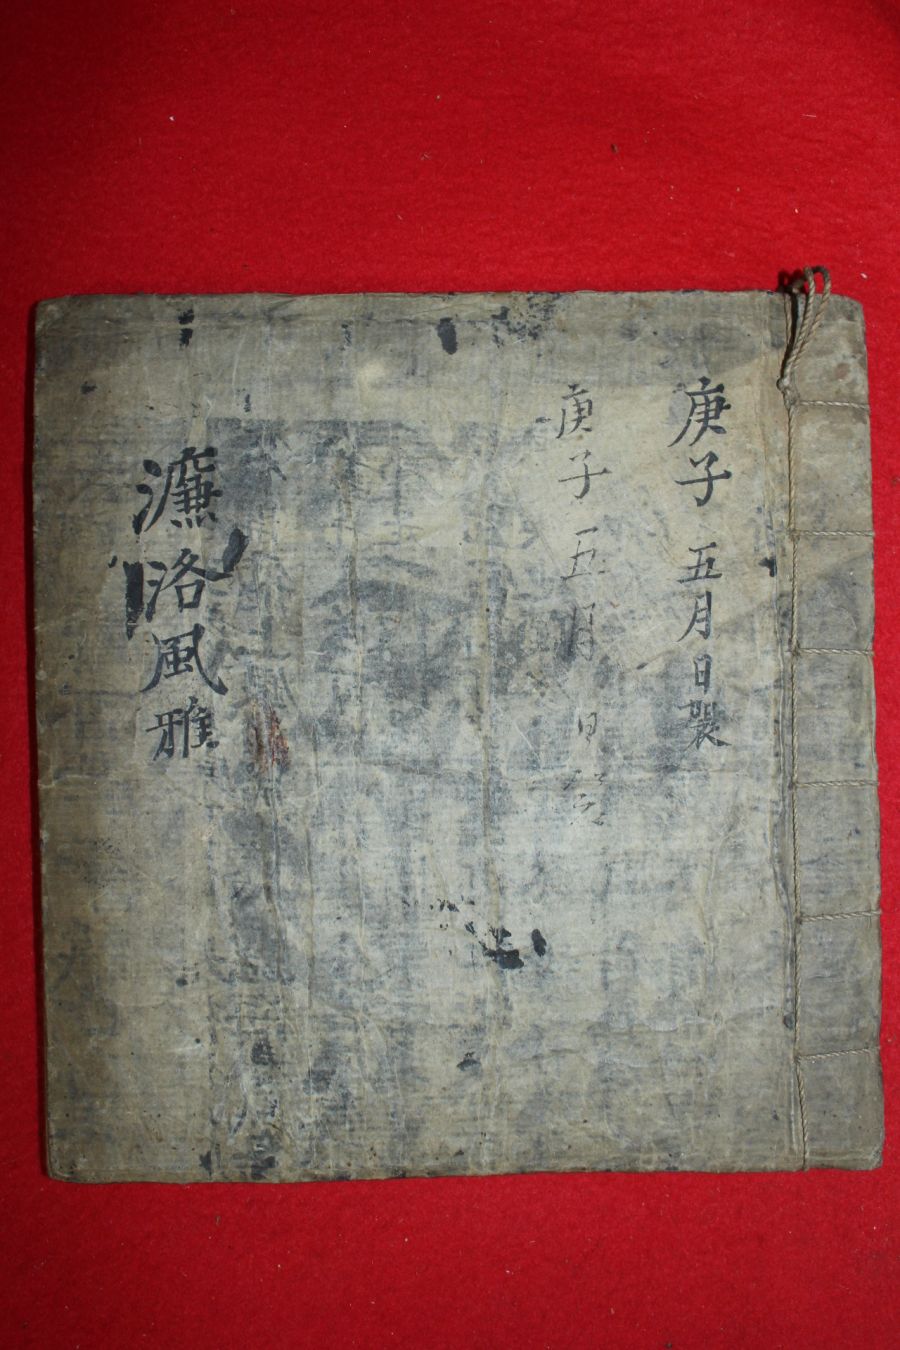 庚子 五月 日裝
庚子 五月 日
濂洛風雅